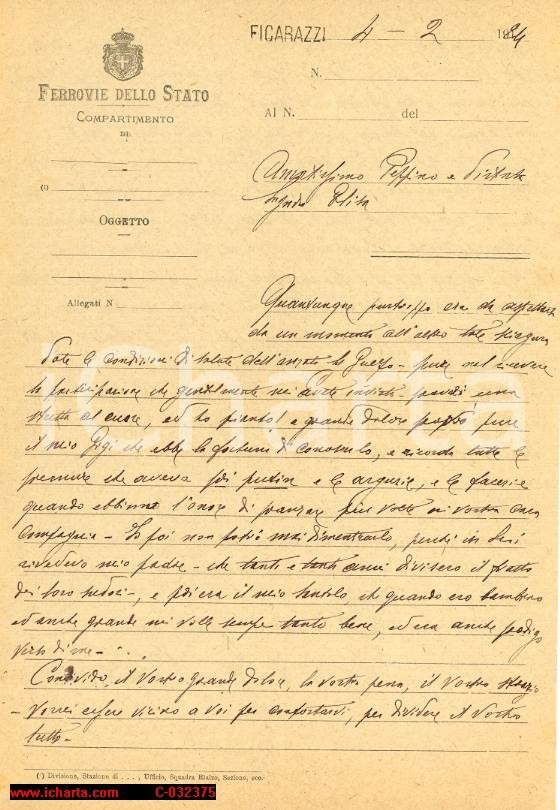 FICARAZZI 4 - 2 1934
N.
FERROVIE DELLO STATO
COMPARTIMENTO
DI
Al N. del
(1)
OGGETTO
Amatissimo Peppino e
Signora Elisa
Allegati N
Quantunque purtroppo era da aspettarsi
da un momento all'altro tale
Date le condizioni di salute dell'amato - pure nel ricevere
la partecipazione che gentilmente mi avete inviato - provai una
stretta al cuore, ed ho pianto! e grande dolore provò pure
il mio Gigi che ebbe la fortuna di conoscerlo, e ricorda tutte le
premure che aveva poi e le arguzie, e le facezie
quando ebbimo l'onore di pranzare più volte in vostra cara
compagnia - Io poi non potrò mai dimenticarlo, perchè in Lui
rivedevo mio padre - che tanti e tanti anni divisero il frutto
dei loro sudori -, e poi era il mio che quando ero bambino
ed anche grande mi volle sempre tanto bene, ed era anche prodigo
verso di me - . .
Condivido il Vostro grande dolore, la vostra pena, il Vostro strazio
- Vorrei essere vicino a voi per confortarvi, per dividere il Vostro
lutto -
(1) Divisione, Stazione di . . . , Ufficio, Squadra Rialzo, Sezione, ecc.
icharta
www.icharta.com C-032375